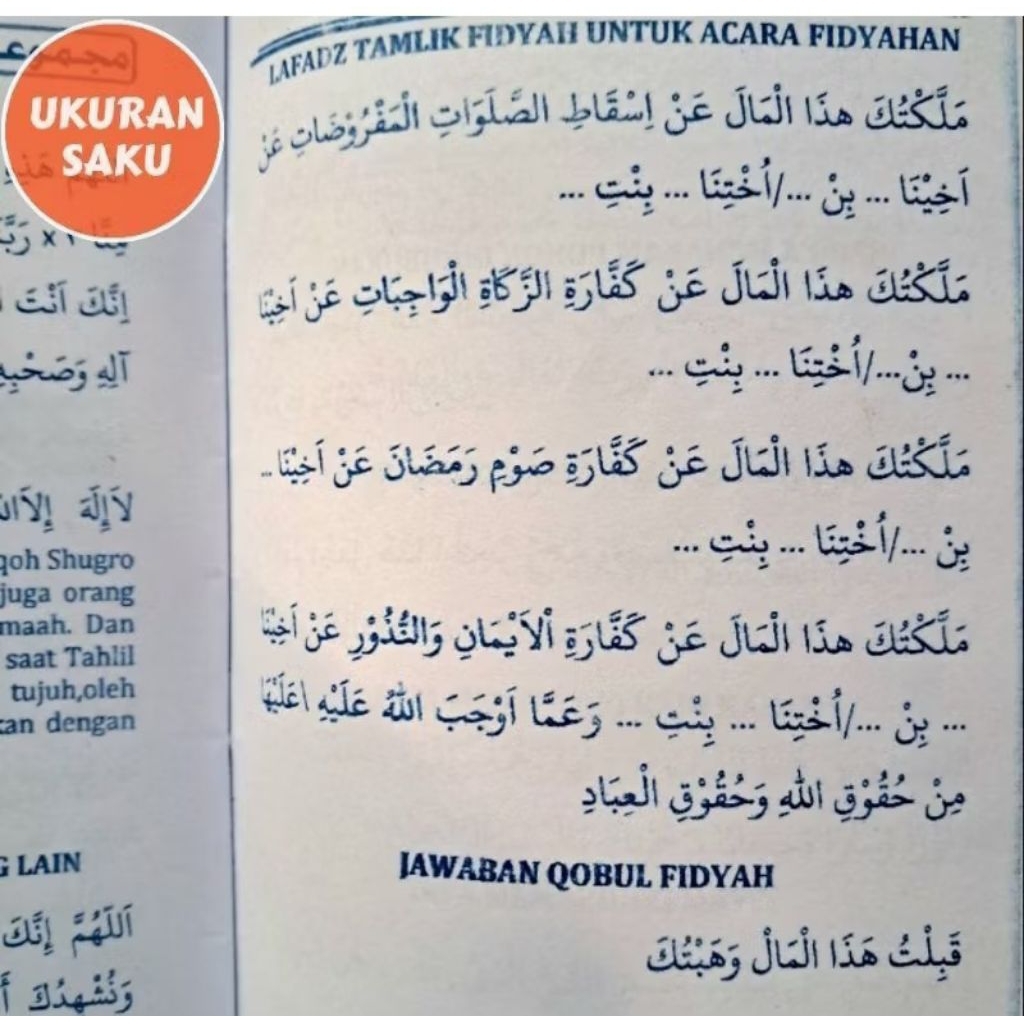 UKURAN
SAKU
LAFADZ TAMLIK FIDYAH UNTUK ACARA FIDYAHAN
مَلَّكْتُكَ هذَا الْمَالَ عَنْ اِسْقَاطِ الصَّلَوَاتِ الْمَفْرُوْضَاتِ عَنْ
اَخِيْنَا ... بِنْ .../اُخْتِنَا ... بِنْتِ ...
مَلَّكْتُكَ هذَا الْمَالَ عَنْ كَفَّارَةِ الزَّكَاةِ الْوَاجِبَاتِ عَنْ اَخِيْنَا
... بِنْ.../اُخْتِنَا ... بِنْتِ ...
مَلَّكْتُكَ هذَا الْمَالَ عَنْ كَفَّارَةِ صَوْمِ رَمَضَانَ عَنْ اَخِيْنَا ..
بِنْ .../اُخْتِنَا ... بِنْتِ ...
مَلَّكْتُكَ هذَا الْمَالَ عَنْ كَفَّارَةِ اْلاَيْمَانِ وَالنُّذُوْرِ عَنْ اَخِيْنَا
... بِنْ .../اُخْتِنَا ... بِنْتِ ... وَعَمَّا اَوْجَبَ اللهُ عَلَيْهِ اعَلَيْهَا
مِنْ حُقُوْقِ اللهِ وَحُقُوْقِ الْعِبَادِ
JAWABAN QOBUL FIDYAH
قَبِلْتُ هَذَا الْمَالْ وَهَبْتُكَ
x ٣ رَبَّ
اِنَّكَ اَنْتَ
آلِهِ وَصَحْبِهِ
لاَإِلَهَ إِلاَّ
qoh Shugro
juga orang
maah. Dan
saat Tahlil
tujuh,oleh
kan dengan
G LAIN
اَللَّهُمَّ إِنَّكَ
وَنُشْهِدُكَ